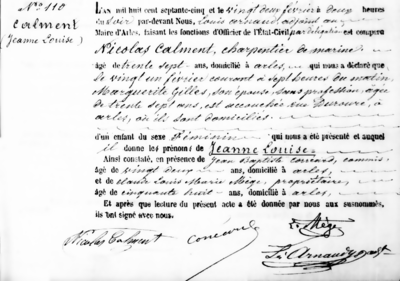 N° 110
Calment
(Jeanne Louise)
L'AN mil huit cent septante-cinq et le vingt deux février à deux heures
du soir par-devant Nous, Louis
Maire d'Arles, faisant les fonctions d'Officier de l'État-Civil par délégation est comparu
Nicolas Calment, charpentier de marine
âgé de trente sept ans, domicilié à arles, qui nous a déclaré que
le vingt un février courant à sept heures du matin,
Marguerite Gilles, son épouse, sans profession, agée
de trente sept ans, est accouchée rue
arles, où ils sont domiciliés
d'un enfant du sexe féminin qui nous a été présenté et auquel
il donne les prénoms de Jeanne Louise
Ainsi constaté, en présence de Jean Baptiste commis
âgé de vingt deux ans, domicilié à arles,
et de Louis Marie Mège, propriétaire,
âgé de cinquante huit ans, domicilié à arles,
Et après que lecture du présent acte a été donnée par nous aux susnommés,
ils ont signé avec nous.
Nicolas Calment
L. Mège
Arnaud